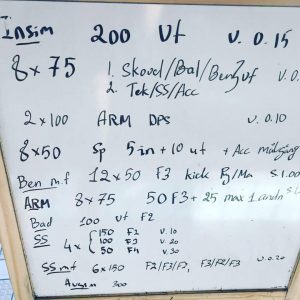 Insim 200 Vf V. 0.15
8x75 1. Skovl/Bål/Ben3vf V. 0
2. Tek/SS/Acc
2x100 ARM DPS V. 0.10
8x50 Sp 5 in + 10 ut + Acc målgång
Ben m.f 12x50 F3 kick Rg/Ma S 1.00
ARM 8x75 50 F3 + 25 max 1. andn
Bad 100 Vf F2
SS 4x 150 F2 V.10
100 F3 V.20
50 F4 V.30
SS mf 6x150 F2/F3/F2, F3/F2/F3 V.0.20
300